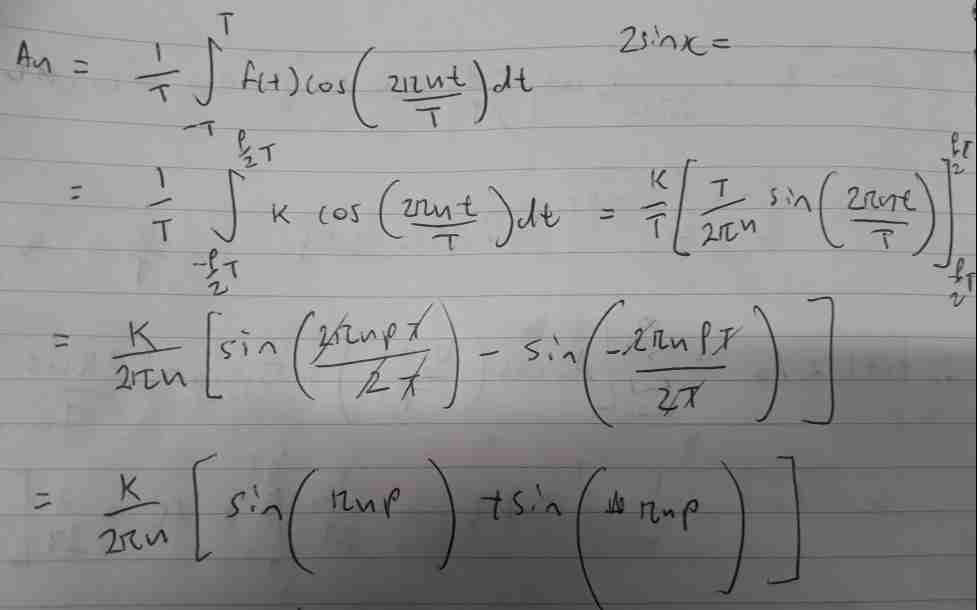 An = 1/T ∫_{-T}^{T} f(t) cos(2πnt/T) dt 2sinx =
= 1/T ∫_{-ρ/2 T}^{ρ/2 T} K cos(2πnt/T) dt = K/T [T/2πn sin(2πnt/T)]_{-ρT/2}^{ρT/2}
= K/2πn [sin(2πnρT/2T) - sin(-2πnρT/2T)]
= K/2πn [sin(πnρ) + sin(πnρ)]